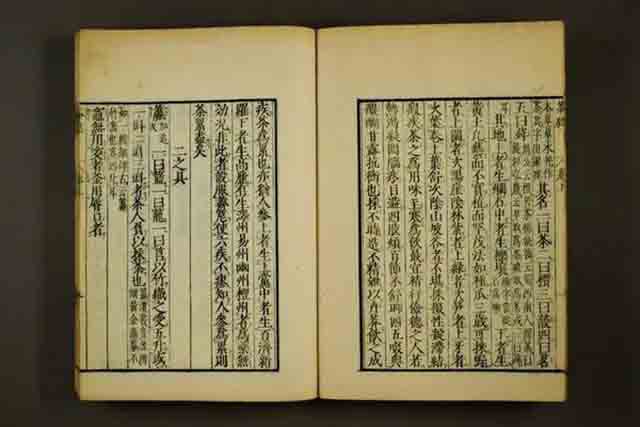 其名一曰茶二曰檟三曰蔎四曰茗
五曰荈
其地上者生爛石中者生櫟壤下者生
黃土凡藝而不實植而罕茂法如種瓜三歲可採野
者上園者次陽崖陰林紫者上綠者次笋者上牙者
次葉卷上葉舒次陰山坡谷者不堪採掇性凝滯結
瘕疾茶之為用味至寒為飲最宜精行儉德之人若
熱渴凝悶腦疼目澀四肢煩百節不舒聊四五啜與
醍醐甘露抗衡也採不時造不精雜以卉莽飲之成
疾茶為累也亦猶人參上者生上黨中者生百濟新
羅下者生高麗有生澤州易州幽州檀州者為藥無
効況非此者設服薺苨使六疾不瘳知人參為累則
茶累盡矣
二之具
籝一曰籃一曰籠一曰筥以竹織之受五升或
者茶人負以採茶也
竈無用突者釜用脣口者